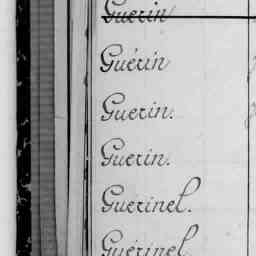 Guerin
Guérin
Guerin.
Guerin.
Guerinel.
Guérinel